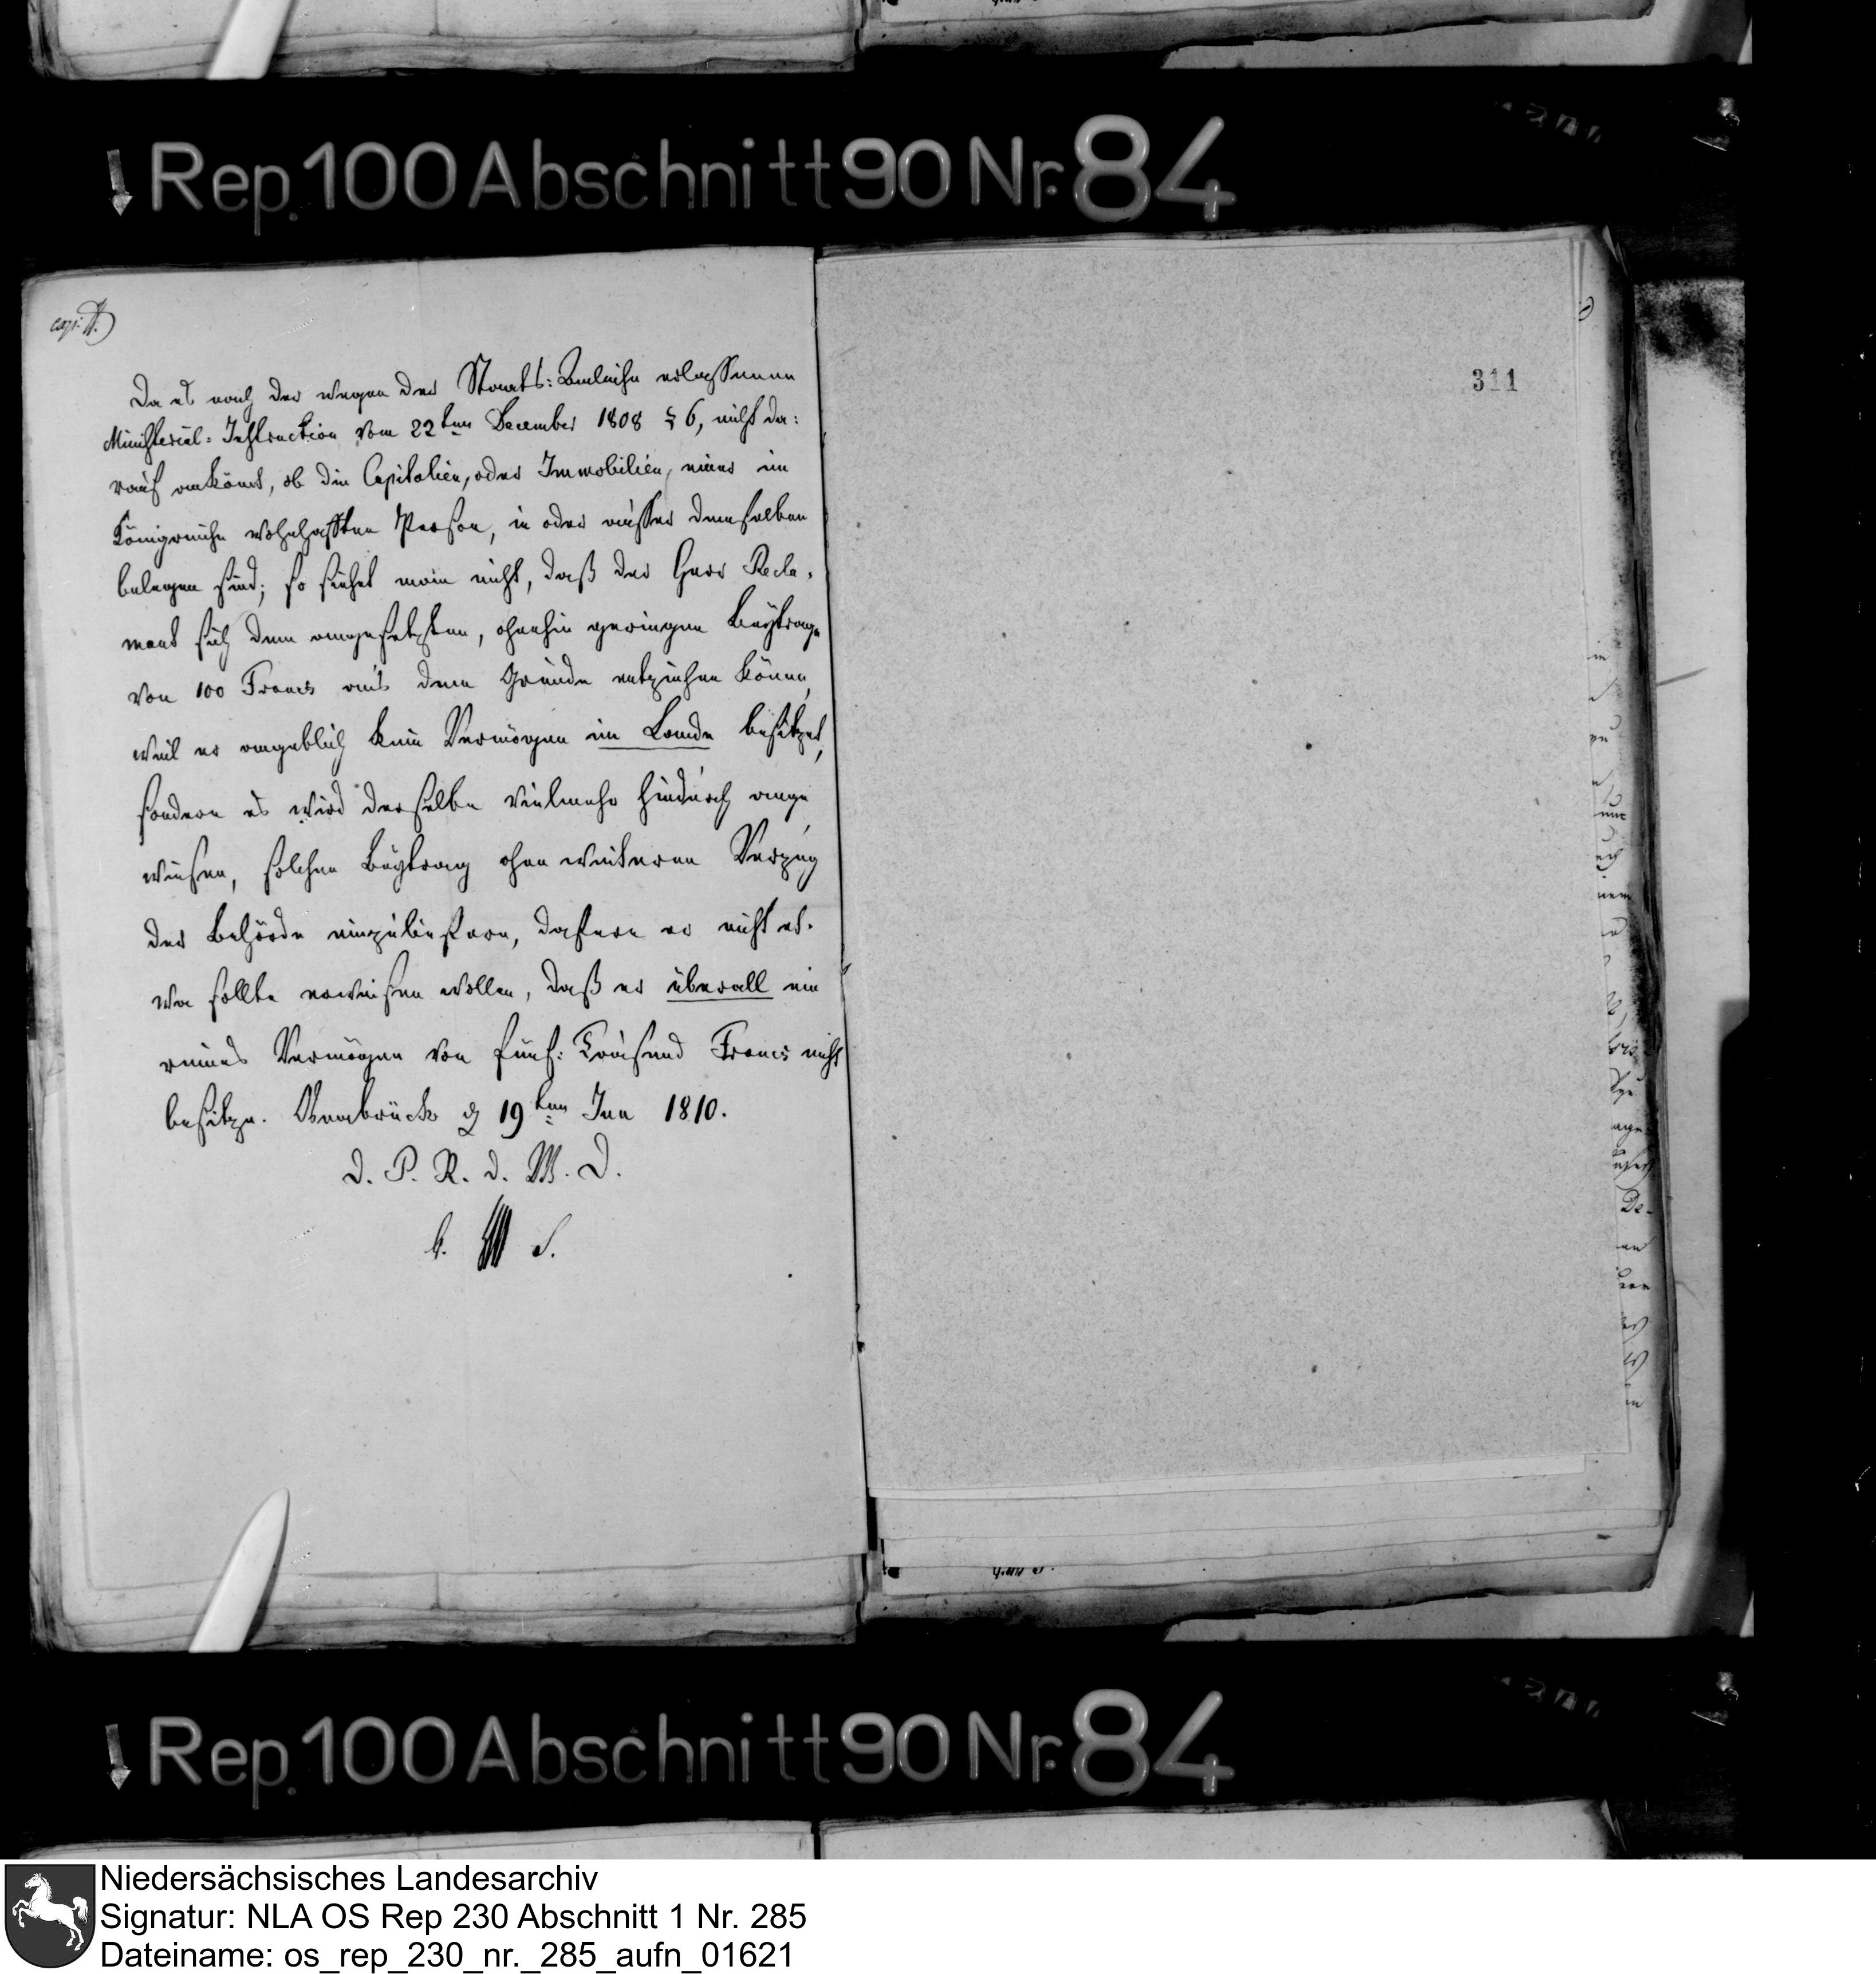 Rep. 100 Abschnitt 90 Nr. 84
311
Da es nach der wegen der Staats-Anleihe erlassenen
Ministerial-Instruction vom 22ten December 1808 § 6, nicht da-
rauf ankömt, ob die Capitalien, oder Immobilien, einer im
Königreiche wohnhafften Person, in oder ausser demselben
belegen sind; so siehet man nicht, daß der Herr Recla-
mant sich dem angesetzten, ohnehin geringen Beytrage
von 100 Francs aus dem Grunde entziehen könne,
weil er angeblich kein Vermögen im Lande besitzet,
sondern es wird derselbe vielmehr hiedurch ange
wiesen, solchen Beytrag ohne weiteren Verzug
der Behörde einzuliefern, dafern er nicht et-
wa sollte erweisen wollen, daß er überall ein
reines Vermögen von fünf-Tausend Francs nicht
besitze. Osnabrück d 19ten Jan 1810.
D. P. R. d. W. D.
S.
Rep. 100 Abschnitt 90 Nr. 84
Niedersächsisches Landesarchiv
Signatur: NLA OS Rep 230 Abschnitt 1 Nr. 285
Dateiname: os_rep_230_nr._285_aufn_01621